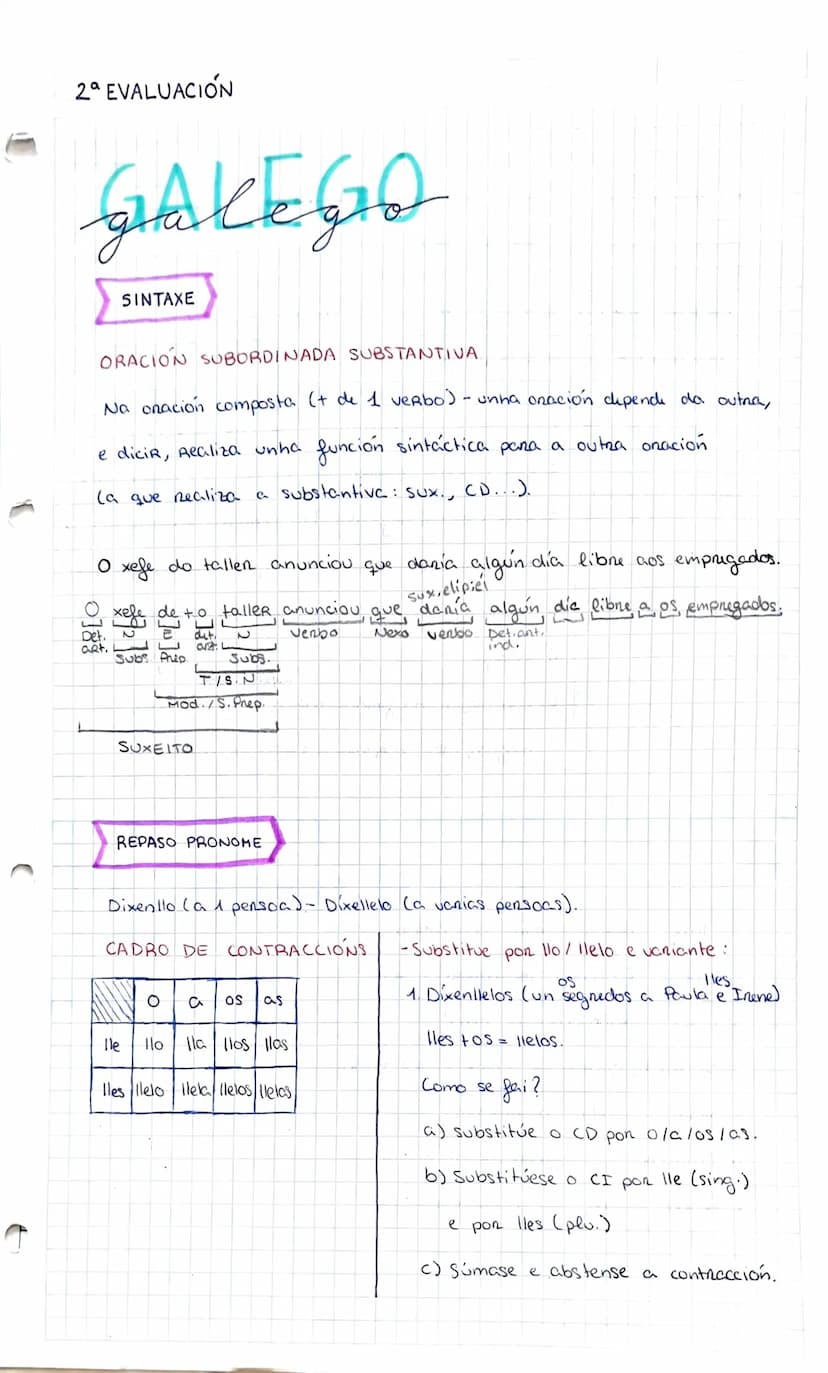 2ª EVALUACIÓN
GALEGO
galego
SINTAXE
ORACIÓN SUBORDINADA SUBSTANTIVA
Na oración composta (+ de 1 verbo) - unha oración depende da outra,
e dicir, realiza unha función sintáctica para a outra oración
(a que realiza a substantiva: sux., CD...).
O xefe do taller anunciou que daría algún día libre aos empregados.
sux.elip:el
O xefe de+o taller anunciou que daría algún día libre a os empregados.
Det. N E det. N Verbo Nexo verbo Det.ant.
art. art. ind.
Subs Prep Subs.
T/S.N
Mod./S.Prep.
SUXEITO
REPASO PRONOME
Dixenllo (a 1 persoa) - Díxellelo (a varias persoas).
CADRO DE CONTRACCIÓNS
o a os as
lle llo lla llos llas
lles llelo llela llelos llelas
- Substitue por llo/llelo e variante:
os lles
1. Díxenllelos (un segredos a Paula e Irene)
lles + os = llelos.
Como se fai?
a) substitúe o CD por o/a/os/as.
b) Substitúese o CI por lle (sing.)
e por lles (plu.)
c) Súmase e abstense a contracción.